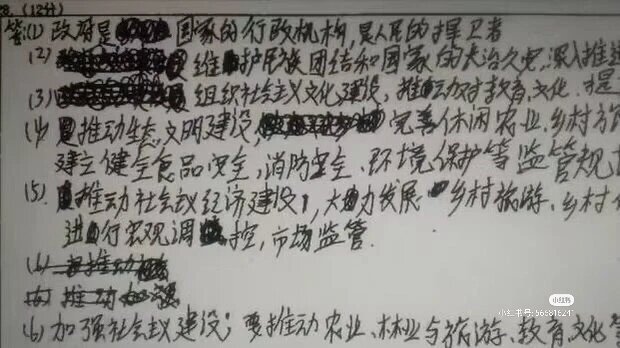 8. (12分)
答:(1) 政府是国家的行政机构，是人民的捍卫者
(2) 维护民族团结和国家的长治久安，深入推进
(3) 组织社会主义文化建设，推动对教育、文化、提
(4) 推动生态文明建设，完善休闲农业、乡村旅
建立健全食品安全，消防安全、环境保护等监管规
(5) 推动社会主义经济建设，大力发展乡村旅游、乡村
进行宏观调控，市场监管.
(6 推动
推动
(6) 加强社会主义建设；要推动农业、林业与旅游、教育文化等
小红书
小红书号:56881624